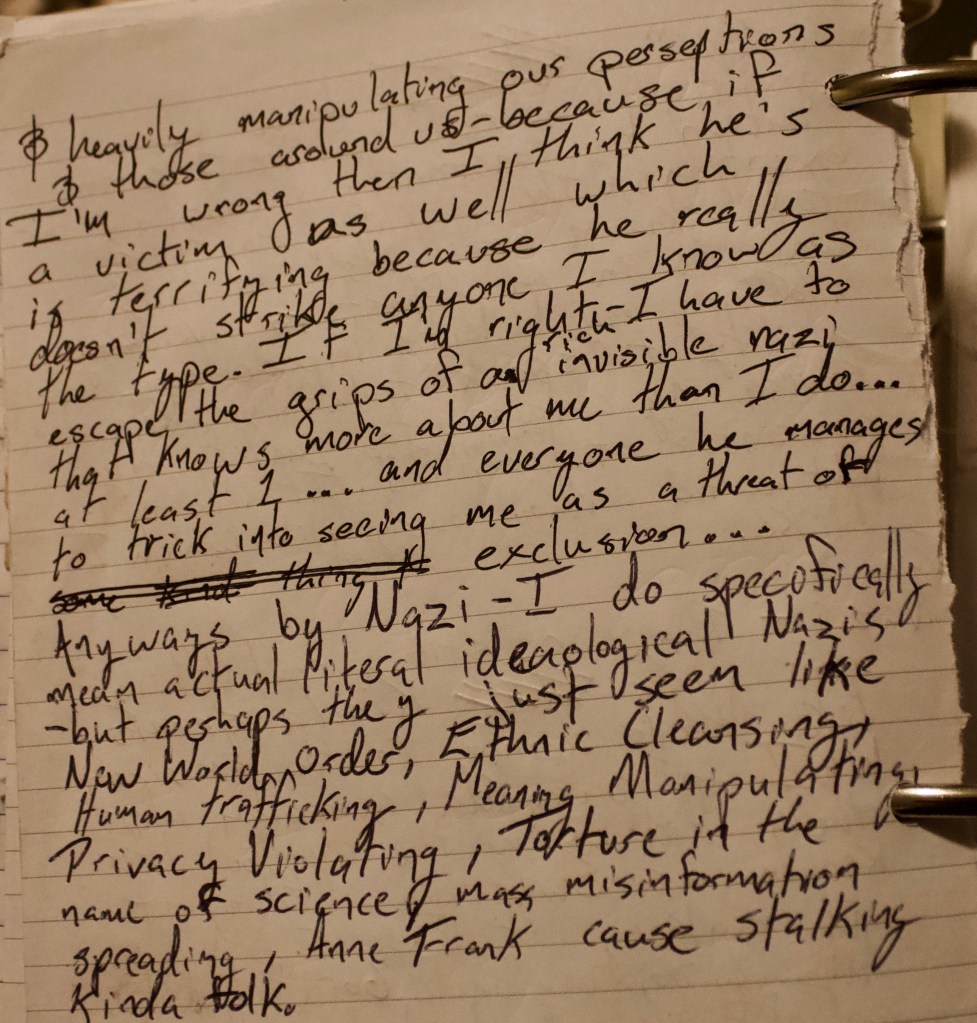 & heavily manipulating our perseptions
& those around us-because if
I'm wrong then I think he's
a victim as well which
is terrifying because he really
doesn't strike anyone I know as
the type. If I'm right-I have to
escape the grips of a rich invisible nazi
that knows more about me than I do...
at least 1 .... and everyone he manages
to trick into seeing me as a threat of
some kind thing exclusion....
Anyways by Nazi-I do specofically
mean actual literal ideaological Nazis
-but perhaps they just seem like
New World Order, Ethnic Cleansing,
Human trafficking, Meaning Manipulating,
Privacy Violating, Torture in the
name of science, mass misinformation
spreading, Anne Frank cause stalking
kinda folk.